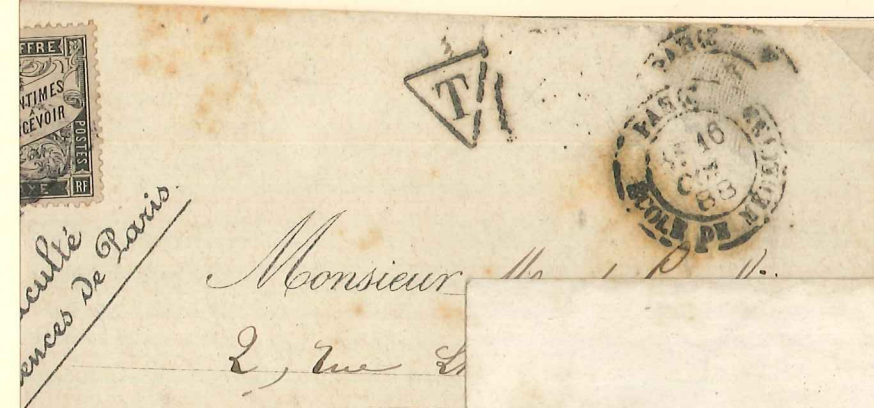 FFRE
NTIMES
A
RCEVOIR
POSTES
XE RF
T
PARIS
PARIS
16
88
ECOLE DE MEDECINE
culté
ences de Paris.
Monsieur
2, rue